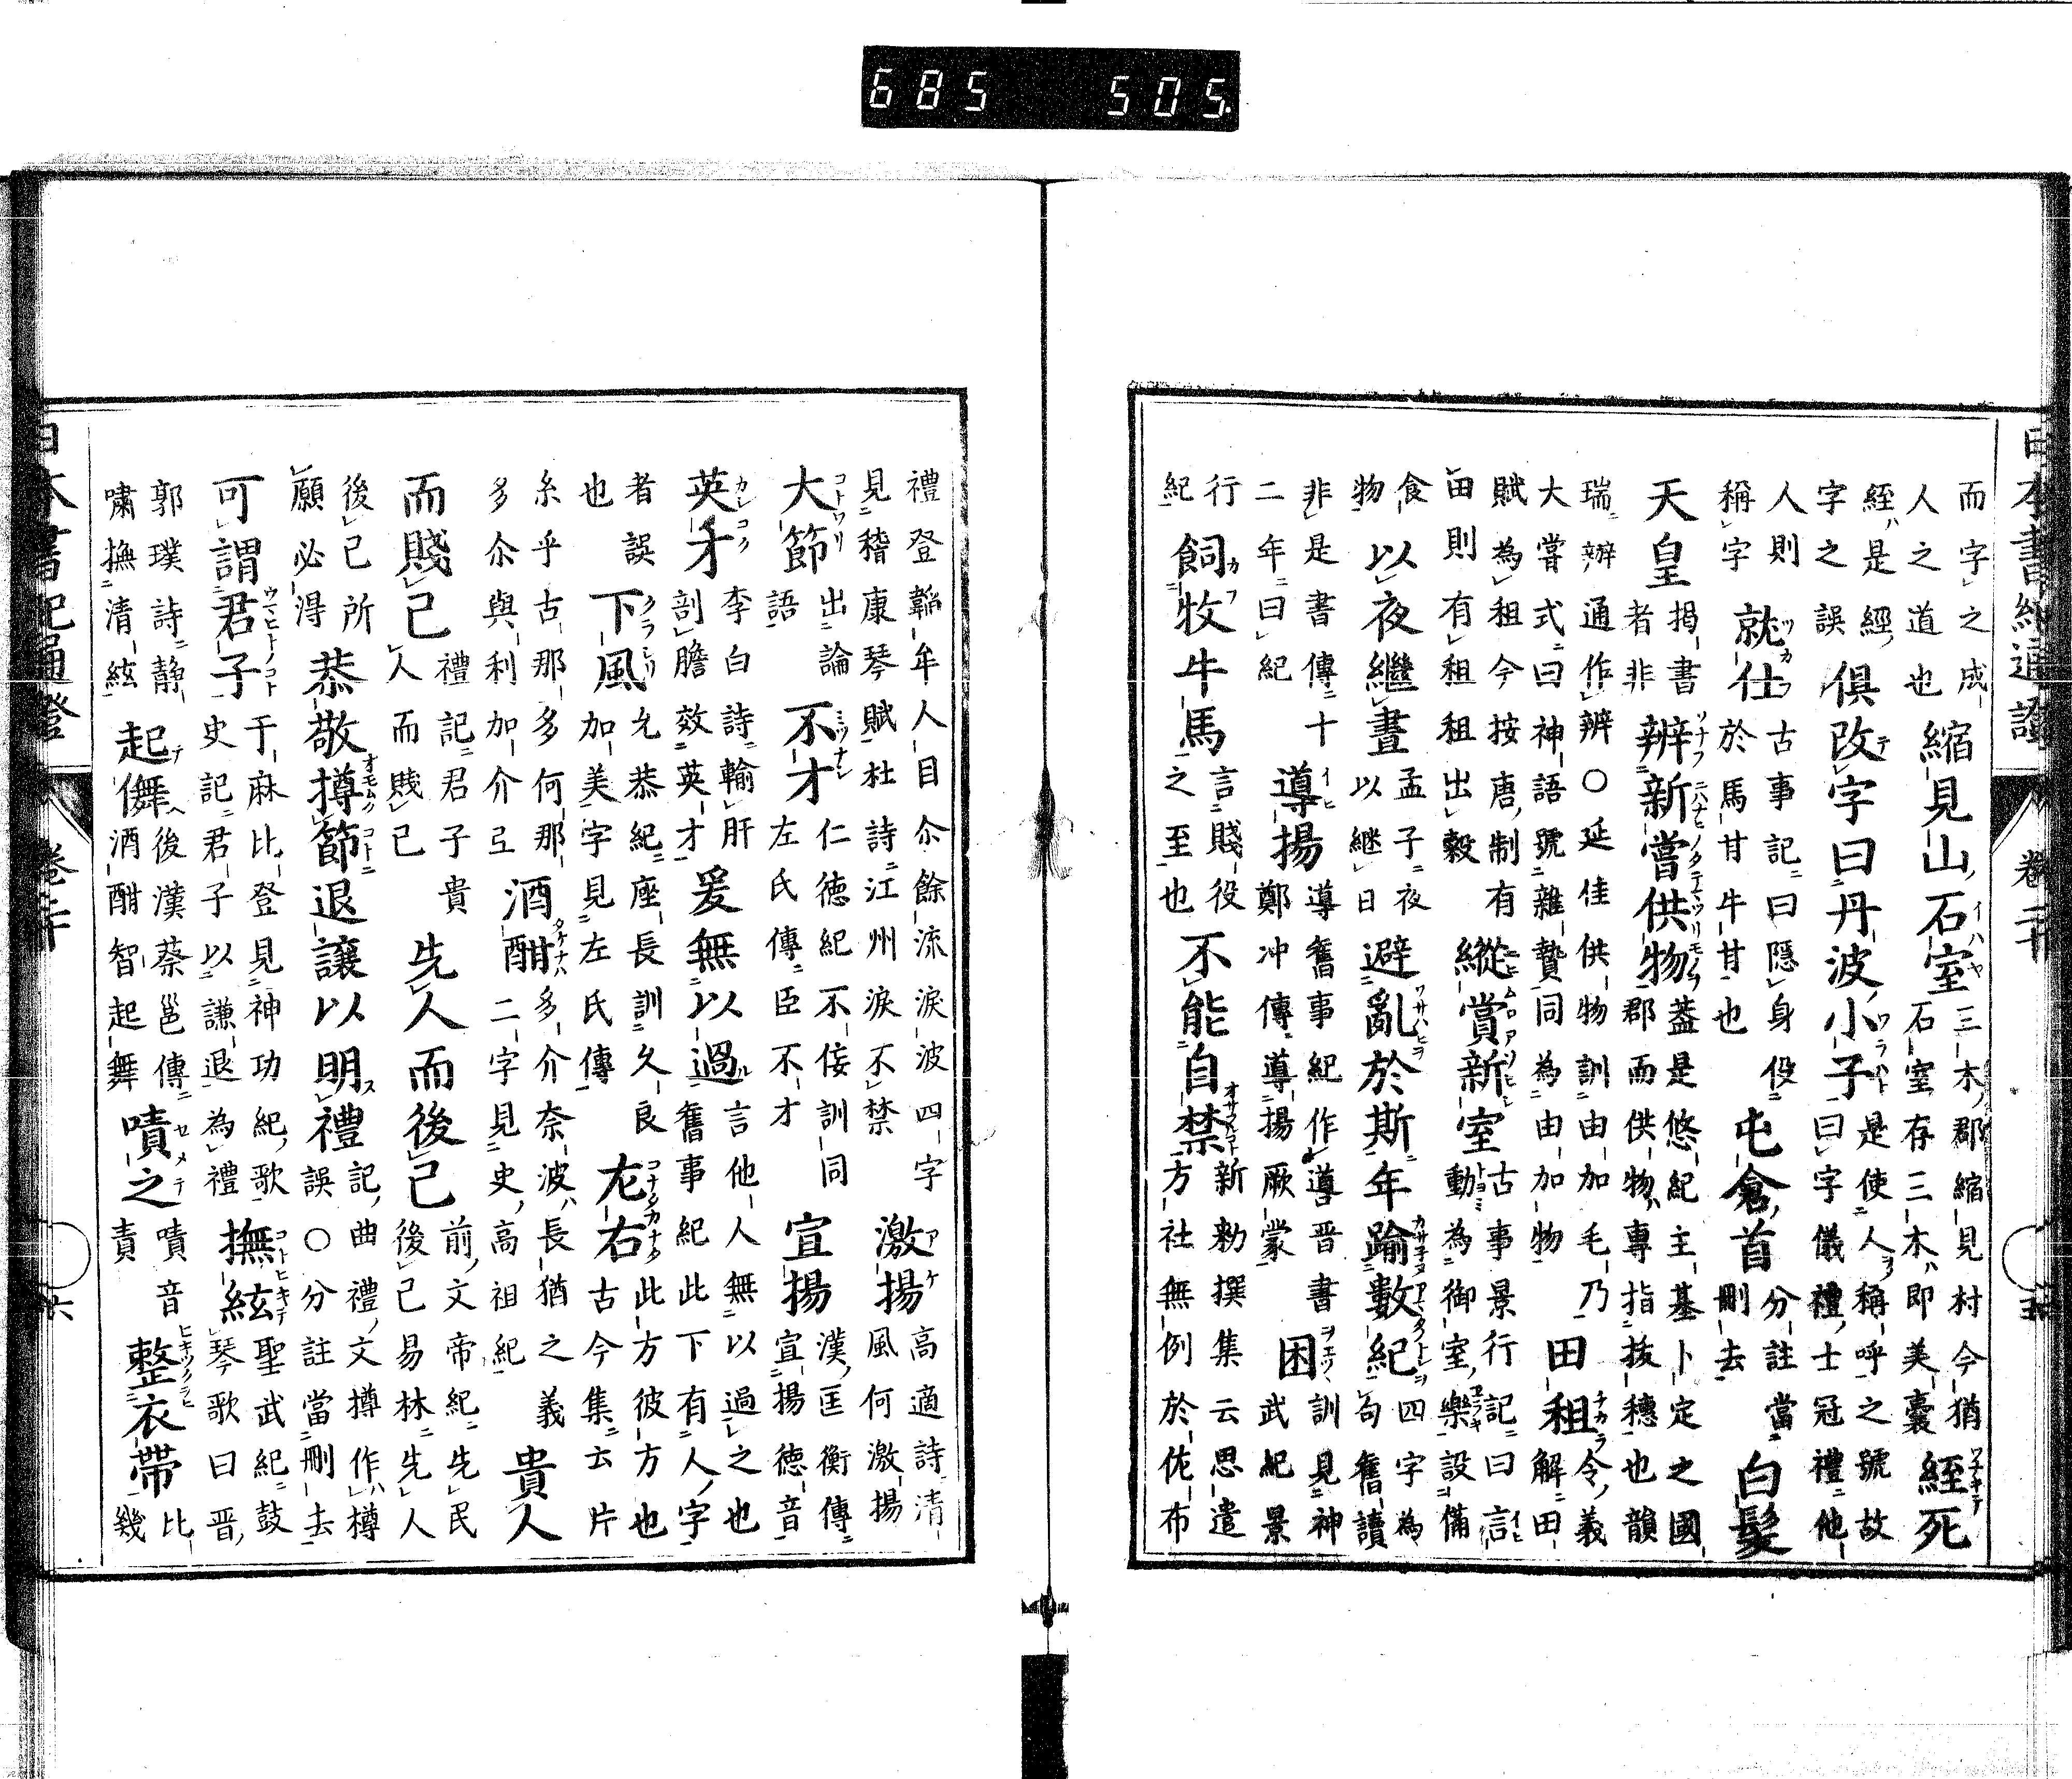 685 505
日本書紀通證 卷二十 五
而字之成人之道也縮見山石室三木郡縮見村今猶石室存三木即美囊絰死
絰是經字之誤俱改字曰丹波小子是使人稱呼之號故曰字儀禮士冠禮他
人則稱字就仕古事記曰隱身伇於馬甘牛甘也屯倉首分註當刪去白髮
天皇揭書者非辨新嘗供物葢是悠紀主基卜定之國郡而供物專指拔穗也韻
瑞辦通作辨〇延佳供物訓由加毛乃大嘗式曰神語號雜贄同為由加物田租令義解田
賦為租今按唐制有田則有租租出穀縱賞新室古事景行記曰言動為御室樂設備
食物以夜繼晝孟子夜以継日避亂於斯年踰數紀四字為句舊讀
非是書傳十二年曰紀導揚導舊事紀作導晋書鄭冲傳導揚厥蒙困訓見神武紀景
行紀飼牧牛馬言賤役之至也不能自禁新勑撰集云思遣方社無例於侘布
禮登韜牟人目尒餘流淚波四字見嵇康琴賦杜詩江州淚不禁激揚高適詩清風何激揚
大節出論語不才仁徳紀不侫訓同左氏傳臣不才宣揚漢匡衡傳宣揚徳音
英才李白詩輸肝剖膽效英才爰無以過言他人無以過之也舊事紀此下有人字
者誤也下風允恭紀座長訓久良加美字見左氏傳左右此方彼方也古今集云片
糸乎古那多何那多尒與利加介弖酒酣多介奈波長猶之義二字見史高祖紀貴人
而賤己禮記君子貴人而賤己先人而後己前文帝紀先民後己易林先人
後己所願必得恭敬撙節退讓以明禮記曲禮文撙作樽誤〇分註當刪去
可謂君子于麻比登見神功紀歌史記君子以謙退為禮撫絃聖武紀鼓琴歌曰晋
郭璞詩静嘯撫清絃起儛後漢蔡邕傳酒酣智起舞嘖之嘖音責整衣帶比幾
日本書紀通證 卷二十 六